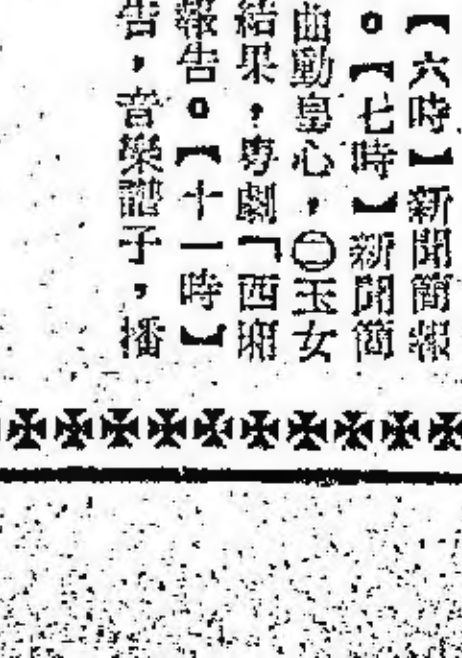 【六時】新聞簡報
。【七時】新聞簡
曲動皇心，㊁玉女
結果，粵劇「西廂
報告。【十一時】
告，音樂譜子，播